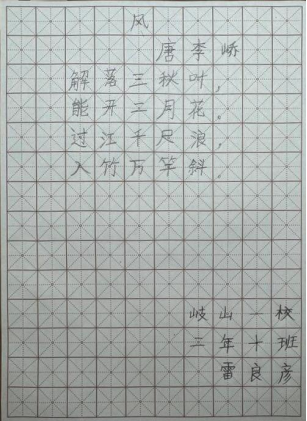 风
唐李峤
解落三秋叶，
能开二月花。
过江千尺浪，
入竹万竿斜。
岐山一校
三年十班
雷良彦